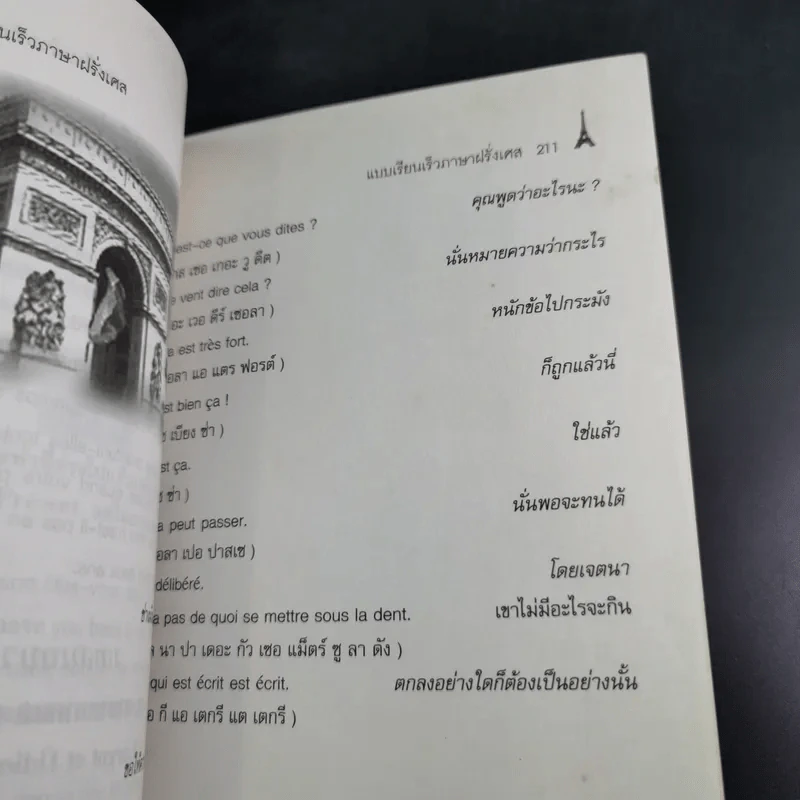 นเร็วภาษาฝรั่งเศส
แบบเรียนเร็วภาษาฝรั่งเศส 211
คุณพูดว่าอะไรนะ ?
est-ce que vous dites ?
ส เซอ เกอะ วู ดีต )
นั่นหมายความว่ากระไร
vent dire cela ?
อะ เวอ ดีร์ เซอลา )
หนักข้อไปกระมัง
a est très fort.
อลา แอ แตร ฟอรต์ )
ก็ถูกแล้วนี่
st bien ça !
ซ เบียง ซ่า )
ใช่แล้ว
st ça.
ซ ซ่า )
นั่นพอจะทนได้
a peut passer.
อลา เปอ ปาสเซ )
โดยเจตนา
délibéré.
เขาไม่มีอะไรจะกิน
a pas de quoi se mettre sous la dent.
นา ปา เดอะ กัว เซอ แม็ตร์ ซู ลา ดัง )
qui est écrit est écrit.
ตกลงอย่างใดก็ต้องเป็นอย่างนั้น
อ กี แอ เตกรี แต เตกรี )